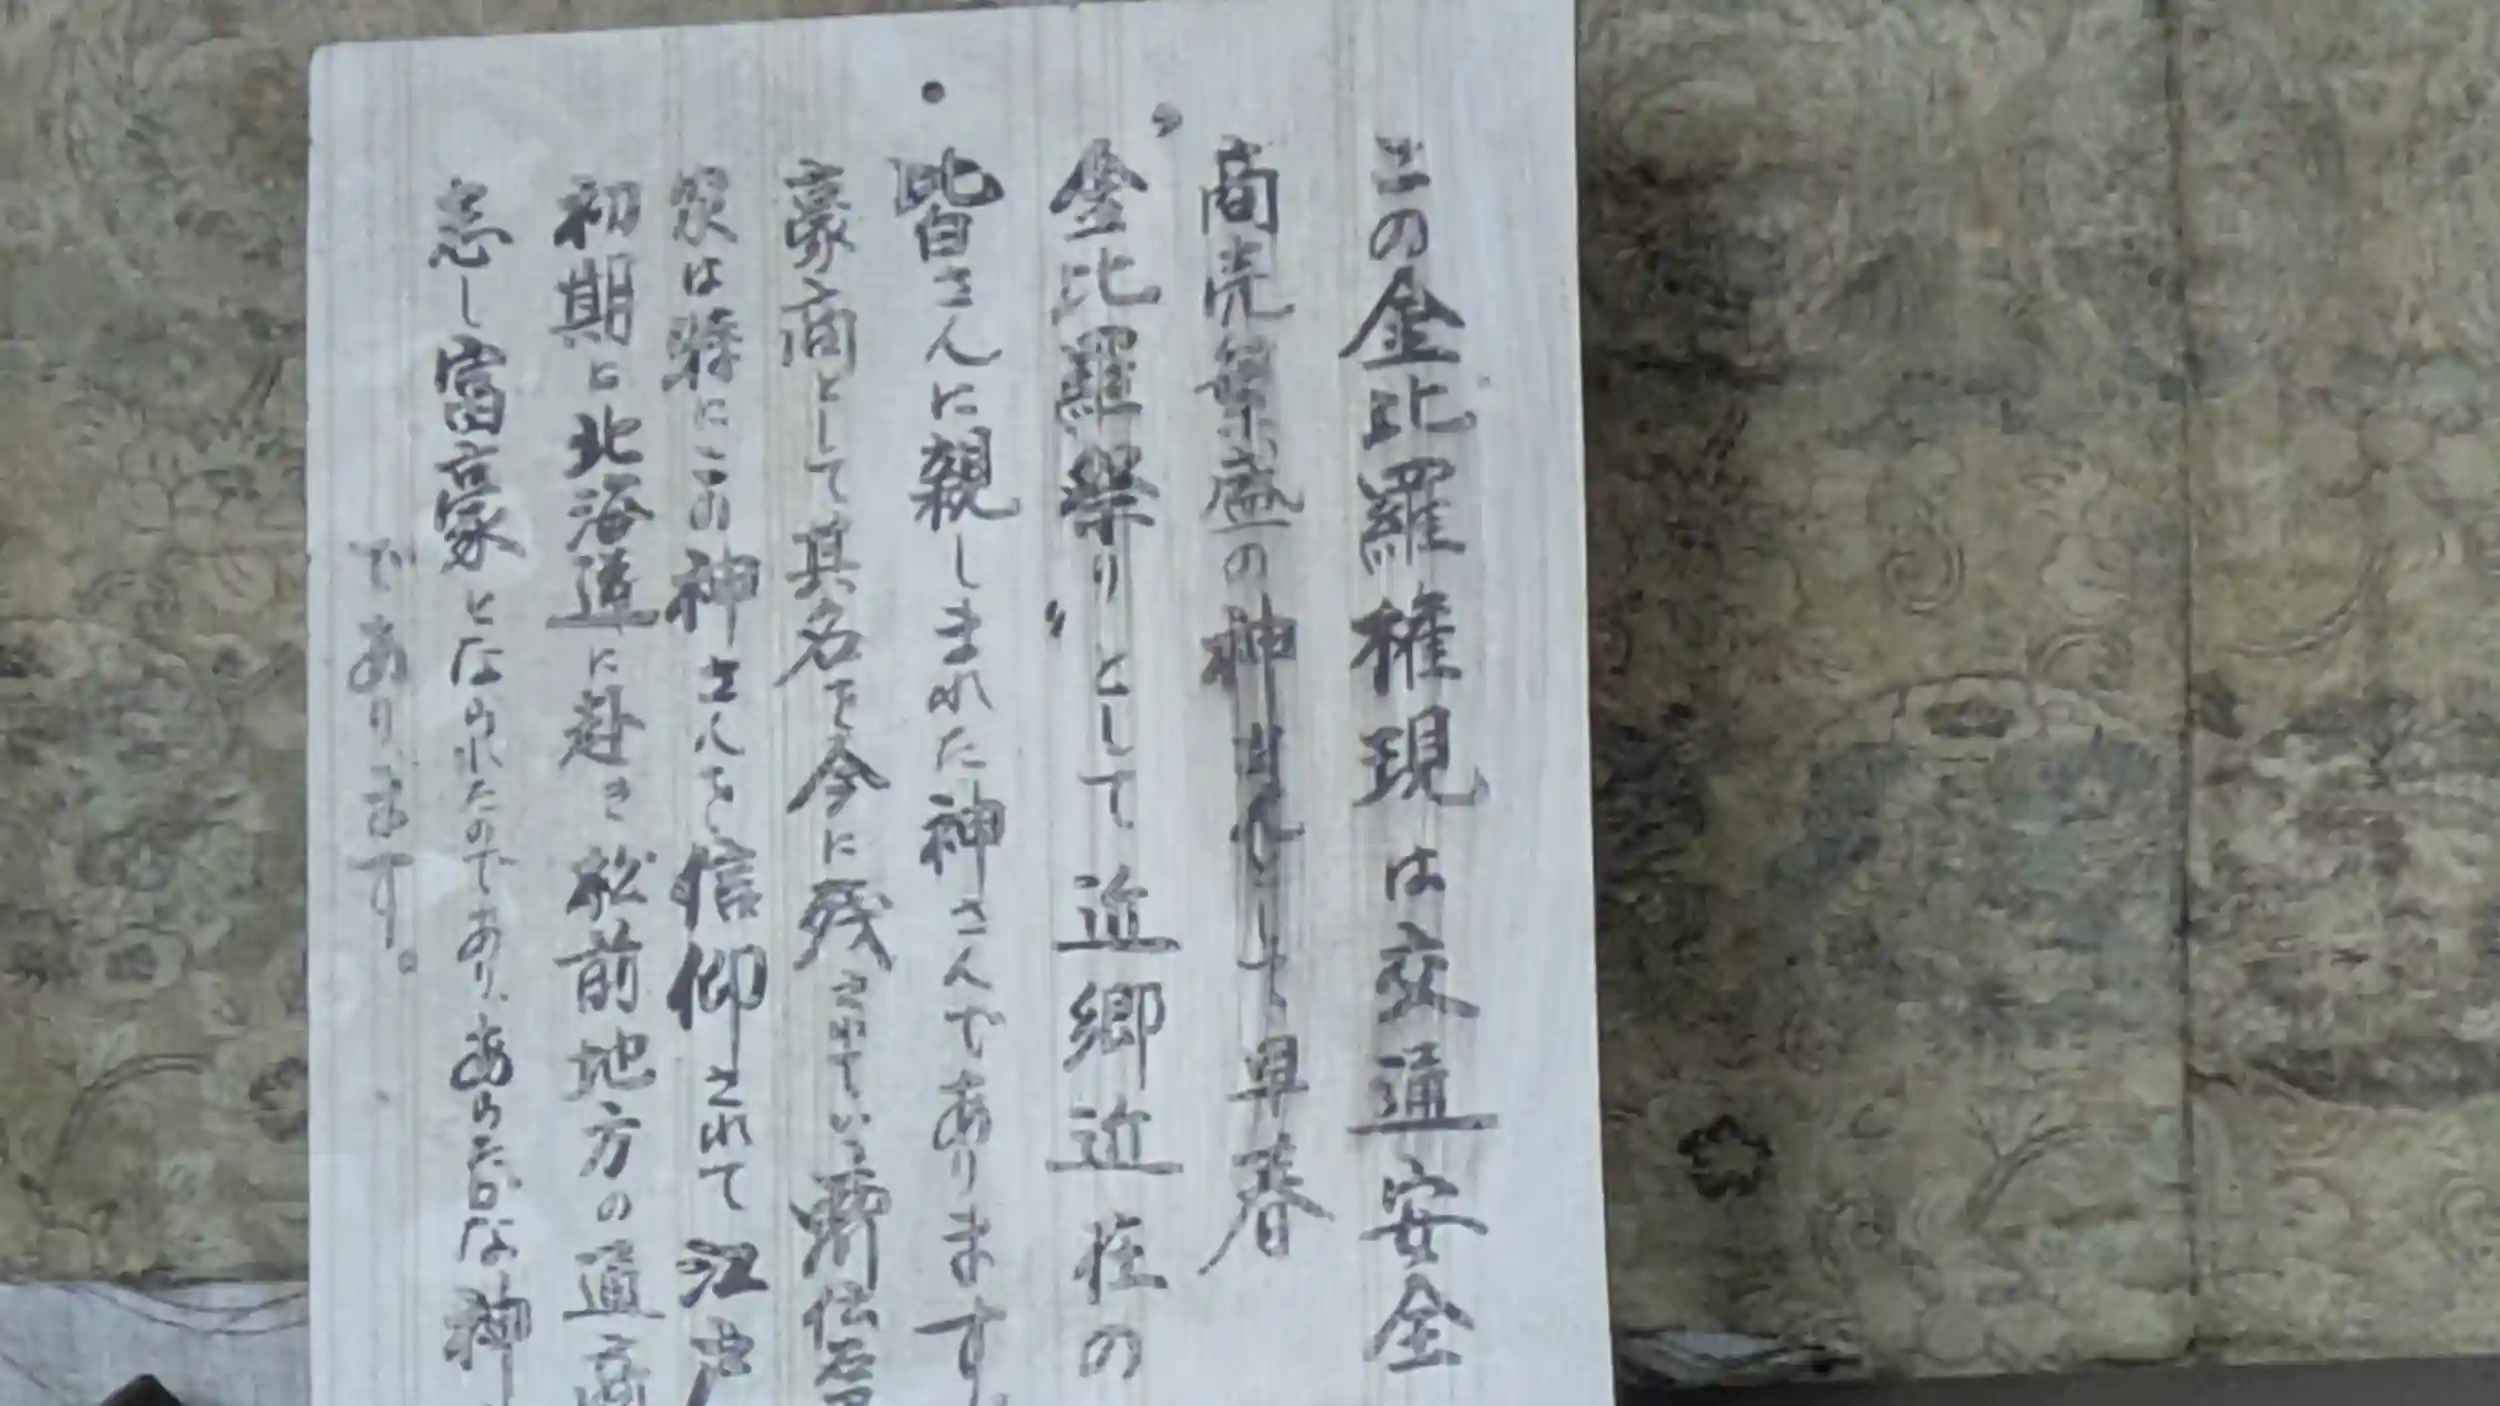 この金比羅権現は交通安全
商売繁盛の神さまとして早春
〝金比羅祭り〟として近郷近在の
皆さんに親しまれた神さんであります。
豪商として其名を今に残されている
家は特にこの神さんを信仰されて江戸
初期に北海道に赴き松前地方の通商
志し富豪となられたのであり、あらたかな神
であります。